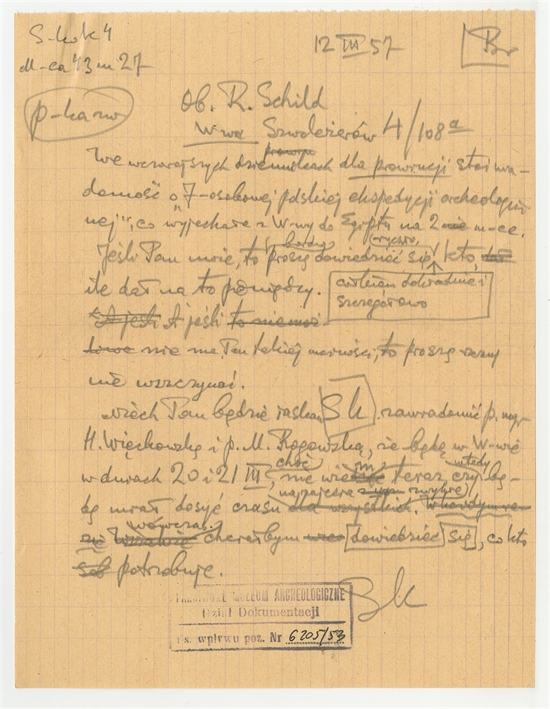 12 III 57
Br
p-kazw
Ob. R. Schild
W-wa Szwoleżerów 4/108a
We wczorajszych dziennikach dla prowincji stoi wia-
domość o "7-osobowej polskiej ekspedycji archeologicz-
nej", co wyjechała z W-wy do Egiptu na 2 m-ce.
Jeśli Pan może, to proszę bardzo dowiedzieć się, kto,
ile dał na to pieniędzy. celem dokładnie i
szczegółowo
A jeśli
nie ma Pan takiej możności, to proszę
nie wszczynać.
Niech Pan będzie łaskaw Sk. zawiadomić p. mgr
H. Więckowską i p. M. Rogowską, że będę w W-wie
w dniach 20 i 21 III, choć nie wiem teraz czy wtedy bę-
dę miał dosyć czasu
wówczas chciałbym dowiedzieć się, co kto
potrzebuje.
Bk
PAŃSTWOWE MUZEUM ARCHEOLOGICZNE
Dział Dokumentacji
Ks. wpływu poz. Nr 6205/53